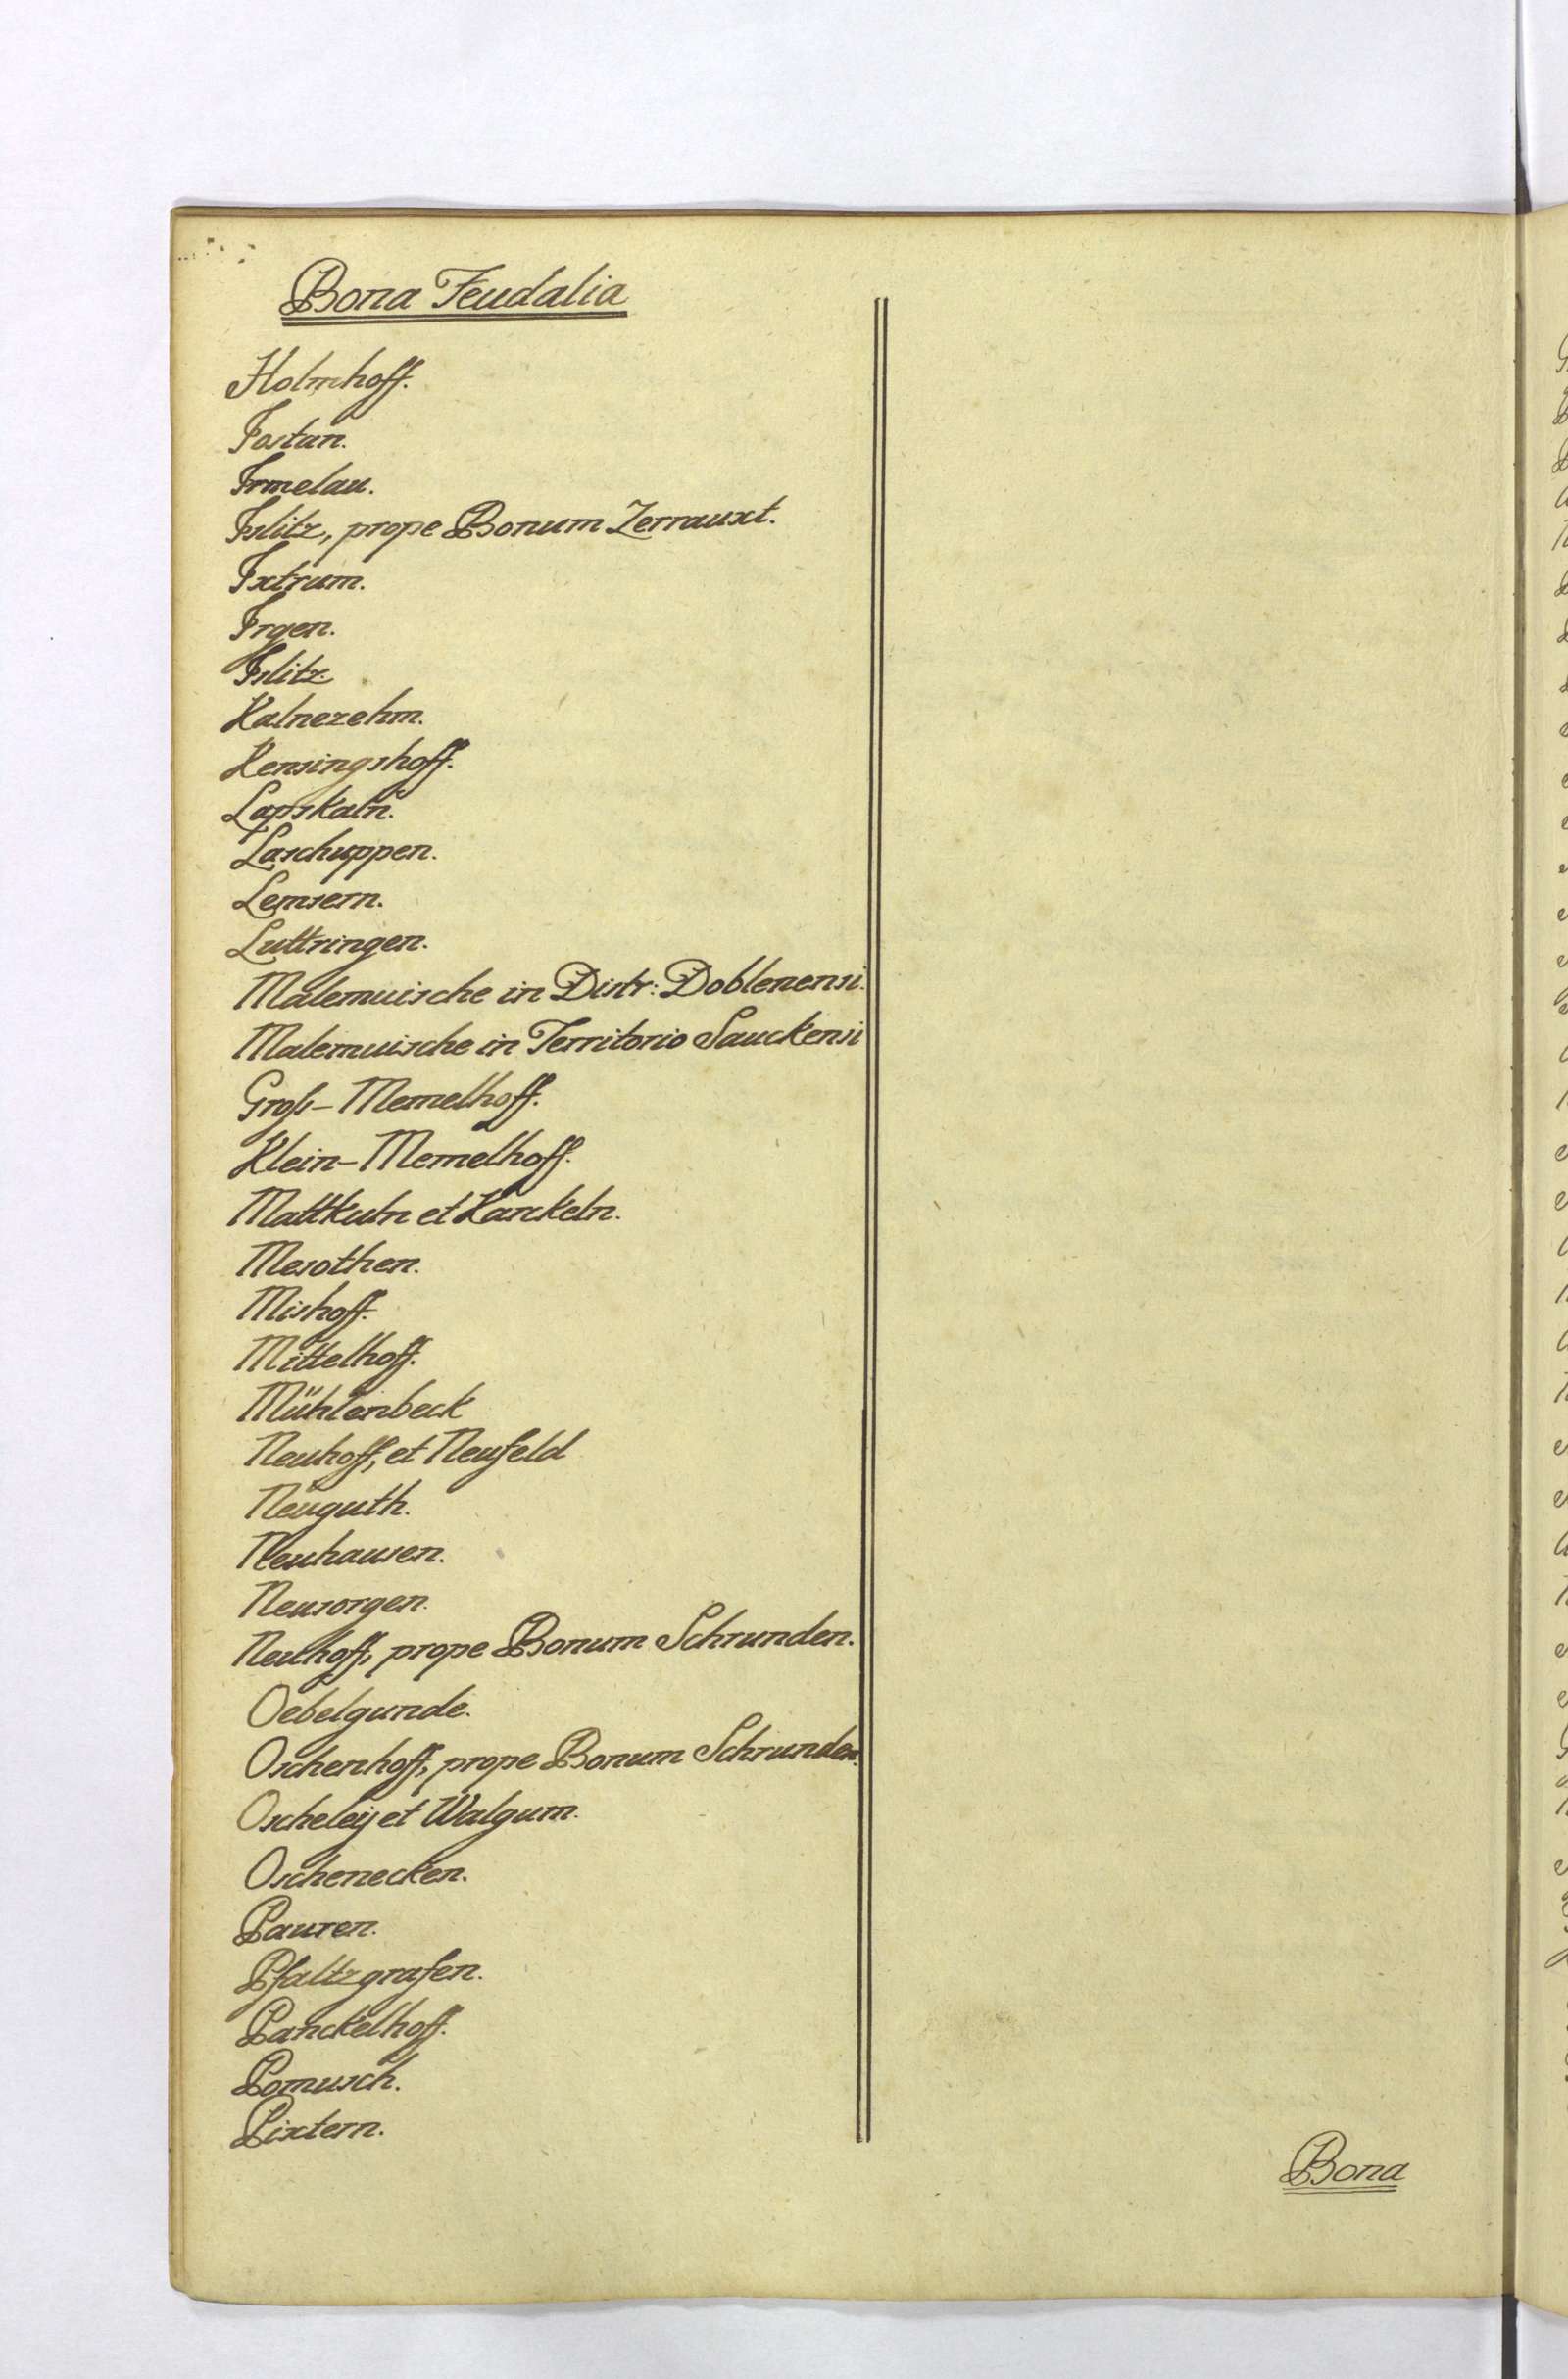 Bona Feudalia
Holmhoff.
Jostan.
Irmelau.
Islitz, prope Bonum Zerrauxt.
Ixtrum.
Irgen.
Islitz.
Kalnezehm.
Kensingshoff.
Lapskaln.
Laschuppen.
Lemsern.
Luttringen.
Malemuische in Distr: Doblenensi.
Malemuische in Territorio Sauckensi
Groß-Memelhoff.
Klein-Memelhoff.
Mattkuln et Karckeln.
Mesothen.
Mishoff.
Mittelhoff.
Mühlenbeck
Neuhoff, et Neufeld
Neuguth.
Neuhausen.
Neusorgen.
Neuhoff, prope Bonum Schrunden.
Oebelgunde.
Oschenhoff, prope Bonum Schrunden.
Oscheleij et Walgum.
Oschenecken.
Pauren.
Pfaltzgrafen.
Panckelhoff.
Pomusch.
Pixtern.
Bona